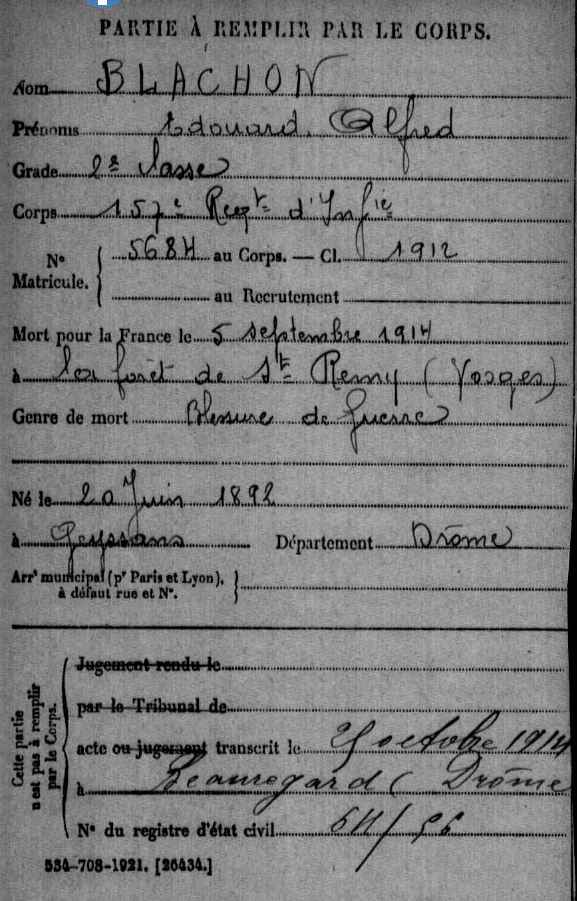 PARTIE À REMPLIR PAR LE CORPS.
Nom BLACHON
Prénoms Edouard Alfred
Grade 2e classe
Corps 157e Regt d'Infie
N° Matricule. { 5684 au Corps. — Cl. 1912
au Recrutement
Mort pour la France le 5 septembre 1914
à la forêt de St Remy (Vosges)
Genre de mort Blessure de guerre
Né le 20 Juin 1892
à Geyssans Département Drôme
Arrt municipal (pr Paris et Lyon), }
à défaut rue et N°.
Cette partie n'est pas à remplir par le Corps.
Jugement rendu le
par le Tribunal de
acte ou jugement transcrit le octobre 1914
à Beauregard (Drôme
N° du registre d'état civil
534-708-1921. [26434.]